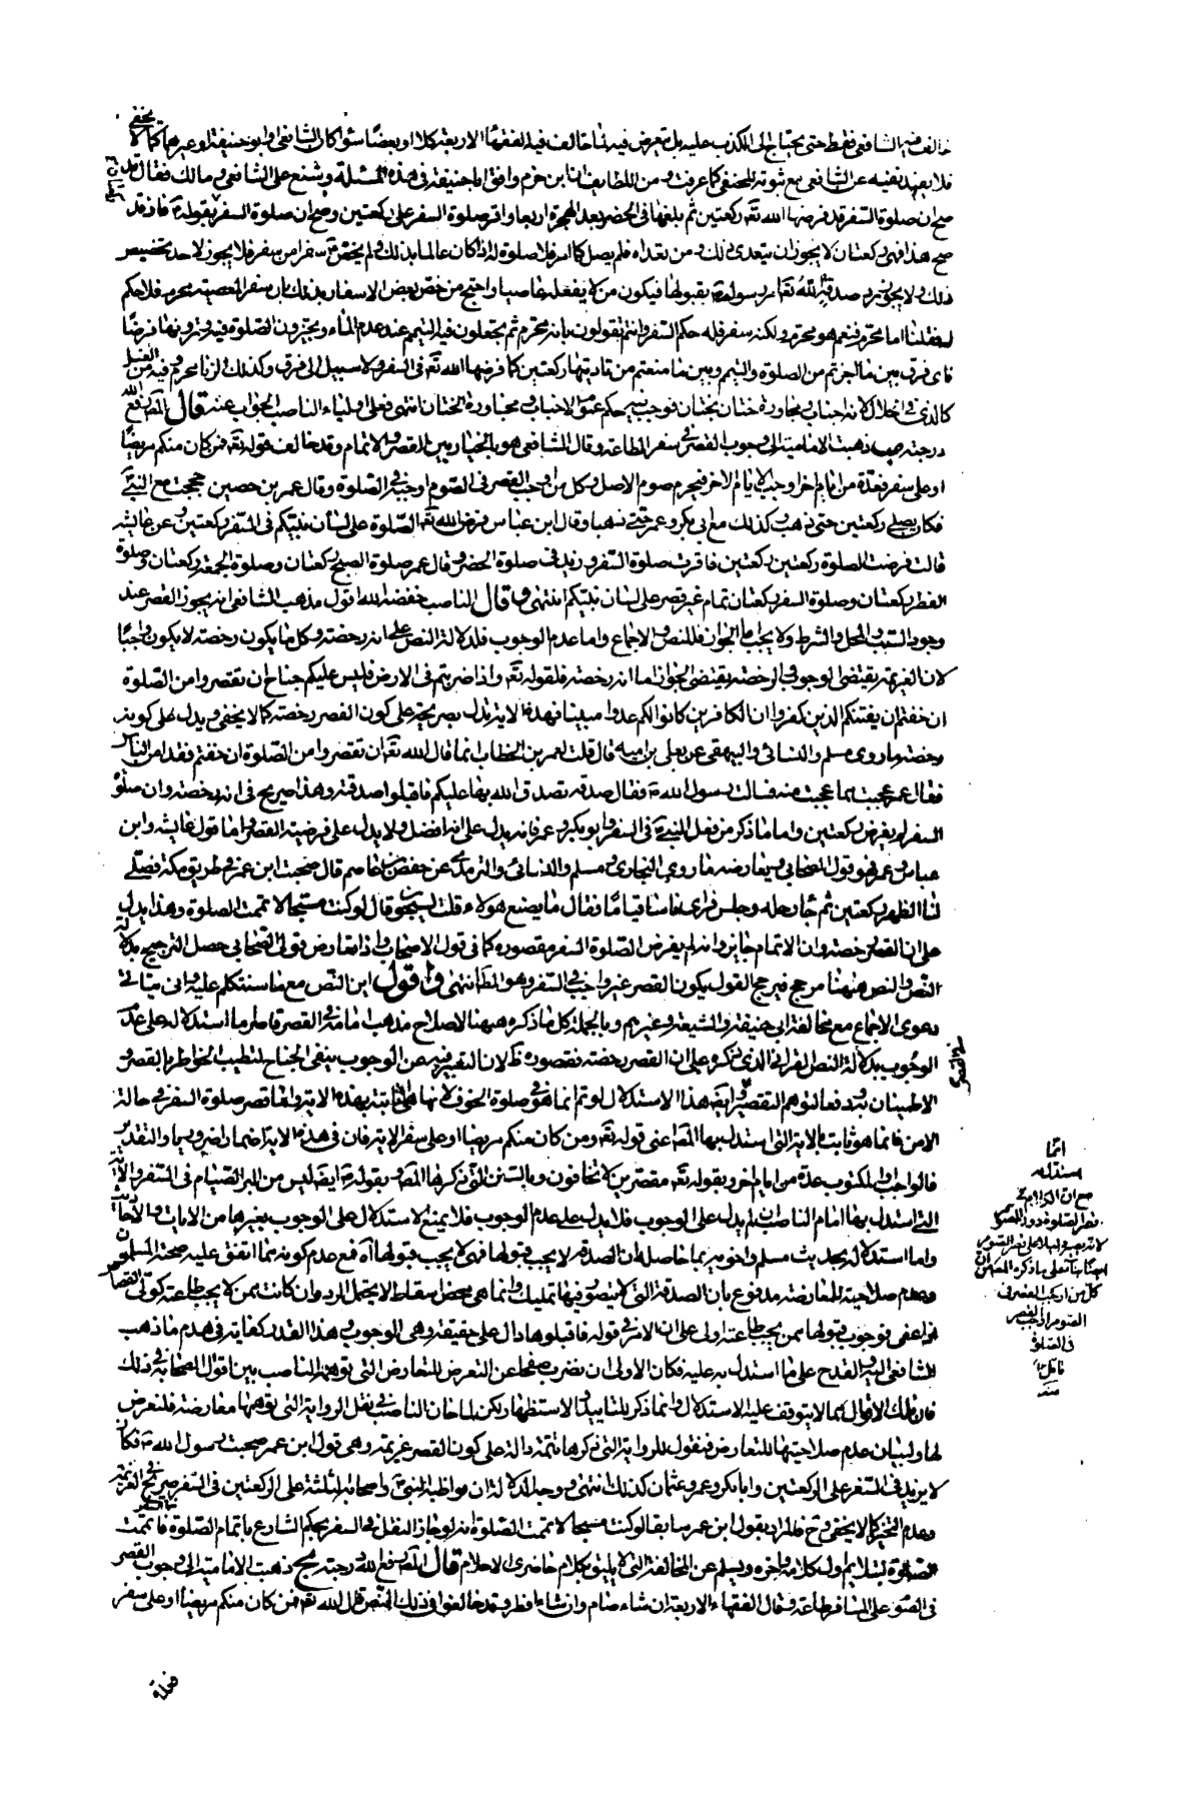 خالف فيه الشافعي فقط حتى يحتاج الى الكذب عليه بل تعرض فيه لما خالف فيه الفقهاء الاربعة كلا او بعضا سواء كان الشافعي او ابو حنيفة او غيرهما كما لا يخفى
فلا يفيد نفيه عن الشافعي مع ثبوته للحنفي كما عرفت ومن اللطايف ان ابن حزم وافق ابا حنيفة في هذه المسئلة وشنع على الشافعي ومالك فقال قد
صح ان صلوة السفر قد فرضها الله تعه ركعتين ثم بلغها في الحضر بعد الهجرة اربعا واقر صلوة السفر على ركعتين وصح ان صلوة السفر بقوله فاذ قد
صح هذا فهي ركعتان لا يجوز ان يتعدى ذلك ومن تعداه فلم يصل كما امر فلا صلوة له اذا كان عالما بذلك ولم يخص سفرا من سفر فلا يجوز لاحد تخصيص
ذلك ولا يجوز رد صدقة الله تعه امر رسوله بقبولها فيكون من لا يفعله عاصيا واحتج من خص بعض الاسفار بذلك بان سفر المعصية محرم فلا حكم
له فقلنا اما محرم فنعم هو محرم ولكنه سفر فله حكم السفر وانتم تقولون بانه محرم ثم تجعلون فيه التيمم عند عدم الماء وتجيزون الصلوة فيه وترونها فرضا
فاي فرق بين ما اجزتم من الصلوة والتيمم وبين ما منعتم من تاديتها ركعتين كما فرضها الله تعه في السفر ولا سبيل الى فرق وكذلك الزنا محرم وفيه من الغسل
كالذي في الحلال لانه اجناب ومجاوزة ختان بختان فوجب فيه حكم عموم الاجناب ومجاوزة الختان انتهى فعلى اولياء الناصب الجواب عنه قال المص رفع الله
درجته ذهبت الامامية الى وجوب القصر في سفر الطاعة وقال الشافعي هو بالخيار بين القصر والاتمام وقد خالف قوله تعه فمن كان منكم مريضا
او على سفر فعدة من ايام اخر اوجب الايام الاخر فيحرم صوم الاصل وكل من اوجب القصر في الصوم اوجب في الصلوة وقال عمر بن حصين حججت مع النبي
فكان يصلي ركعتين حتى ذهب وكذلك مع ابي بكر وعمر حتى ذهبا وقال ابن عباس فرض الله تعه الصلوة على لسان نبيكم في السفر ركعتين وعن عايشة
قالت فرضت الصلوة ركعتين ركعتين فاقرت صلوة السفر وزيد في صلوة الحضر وقال عمر صلوة الصبح ركعتان وصلوة الجمعة ركعتان وصلوة
الفطر ركعتان وصلوة السفر ركعتان تمام غير قصر على لسان نبيكم انتهى وقال الناصب خفضه الله اقول مذهب الشافعي انه يجوز القصر عند
وجود السبب والمحل والشرط ولا يجب اما الجواز فللنص والاجماع واما عدم الوجوب فلدلالة النص على انه رخصة وكل ما يكون رخصة لا يكون واجبا
لان العزيمة يقتضي الوجوب والرخصة يقتضي الجواز اما انه رخصة فلقوله تعه واذا ضربتم في الارض فليس عليكم جناح ان تقصروا من الصلوة
ان خفتم ان يفتنكم الذين كفروا ان الكافرين كانوا لكم عدوا مبينا فهذه الاية تدل بصريحه على كون القصر رخصة كما لا يخفى ويدل على كونه
رخصة ما روى مسلم والنسائي والبيهقي عن يعلى بن امية قال قلت لعمر بن الخطاب انما قال الله تعه ان تقصروا من الصلوة ان خفتم فقد امن الناس
فقال عمر عجبت مما عجبت منه فسالت رسول الله ص فقال صدقة تصدق الله بها عليكم فاقبلوا صدقته وهذا صريح في انه رخصة وان صلوة
السفر لم يفرض ركعتين واما ما ذكر من فعل النبي في السفر وابو بكر وعمر فانه يدل على انه افضل ولا يدل على فرضية القصر واما قول عايشة وابن
عباس وعمر فهو قول الصحابي ويعارضه ما روى البخاري ومسلم والنسائي والترمذي عن حفص بن عاصم قال صحبت ابن عمر في طريق مكة فصلى
لنا الظهر ركعتين ثم جاء رحله وجلس فراى ناسا قياما فقال ما يصنع هولاء قلت يسبحون قال لو كنت مسبحا لاتممت الصلوة وهذا يدل
على ان القصر رخصة وان الاتمام جايز وانه لم يفرض الصلوة السفر مقصورة كما في قول الاصحاب واذا تعارض قولي الصحابي حصل الترجيح بدلالة
النص والنص هيهنا مرجح فيرجح القول بكون القصر غير واجب في السفر وهو المط انتهى واقول اين النص مع ما سنتكلم عليه انى يتاتى
دعوى الاجماع مع مخالفة ابي حنيفة والشيعة وغيرهم وبالجملة كل ما ذكره هيهنا لاصلاح مذهب امامه في القصر فاصل ما استدلاله على عدم
الوجوب بدلالة النص القراني الذي ذكره على ان القصر رخصة فقصوره ظ لان التعبير فيه عن الوجوب بنفي الجناح لتطيب الخواطر بالقصر و
الاطمينان به ودفعا لتوهم التقصير وايضا هذا الاستدلال لو تم انما هو في صلوة الخوف لانها هي الثابتة بهذه الاية واما قصر صلوة السفر في حالة
الامن فانما هو ثابت بالاية التي استدل بها المص اعني قوله تعه ومن كان منكم مريضا او على سفر الاية فان في هذه الاية اضمارا ضروريا والتقدير
فالواجب او المكتوب عدة من ايام اخر وبقوله تعه مقصرين لا تخافون وبالسنن التي ذكرها المص وبقوله ايضا ليس من البر الصيام في السفر والاية
التي استدل بها امام الناصب ان لم يدل على الوجوب فلا يدل على عدم الوجوب فلا يمنع الاستدلال على الوجوب بغيرها من الايات والاحاديث
واما استدلاله بحديث مسلم واخويه بما حاصله ان الصدقة لا يجب قبولها فهي لا يجب قبولها فمع عدم كونه مما اتفق عليه صحة المسلمون
وعدم صلاحيته للمعارضة مدفوع بان الصدقة التي لا يتصور فيها تمليك وانما هي محض اسقاط لا يحتمل الرد وان كانت ممن لا يجب طاعته كولي القصاص
اذا عفى فوجوب قبولها ممن يجب طاعته اولى على ان الامر في قوله فاقبلوها دال على حقيقته وهي الوجوب وفي هذا القدر كفاية في هدم ما ذهب
الشافعي اليه والقدح على ما استدل به عليه فكان الاولى ان نضرب صفحا عن التعرض للتعارض التي توهم الناصب بين اقوال الصحابة في ذلك
فان تلك الاقوال مما لا يتوقف عليه الاستدلال وانما ذكر للتاييد والاستظهار لكن لما خان الناصب في نقل الرواية التي توهمها معارضة فلنعرض
لها ولبيان عدم صلاحيتها للتعارض فنقول للرواية التي ذكرها تتمة دالة على كون القصر عزيمة وهي قول ابن عمر صحبت رسول الله ص فكان
لا يزيد في السفر على الركعتين وابا بكر وعمر وعثمان كذلك انتهى ووجه الدلالة ان مواظبة النبي واصحابه الثلثة على الركعتين في السفر صريح في العزيمة
وعدم التخيير كما لا يخفى وح فالمراد بقول ابن عمر سابقا لو كنت مسبحا لاتممت الصلوة انه لو جاز النفل في السفر بحكم الشارع باتمام الصلوة فاتممت
الصلوة ليتلايم اول كلامه واخره ويسلم عن المخالفة التي لا يليق بكلام حاضري الاحلام قال المص رفع الله درجته مح ذهبت الامامية الى وجوب القصر
في الصوم على المسافر طاعة وقال الفقهاء الاربعة ان شاء صام وان شاء افطر وقد خالفوا في ذلك النص قال الله تعه فمن كان منكم مريضا او على سفر
فعدة
في القصر
انما
استدل به
مع ان الكلام في
قصر الصلوة دون الصوم
كل من اوجب القصر في
الصوم اوجب القصر
في الصلوة
تامل
منه